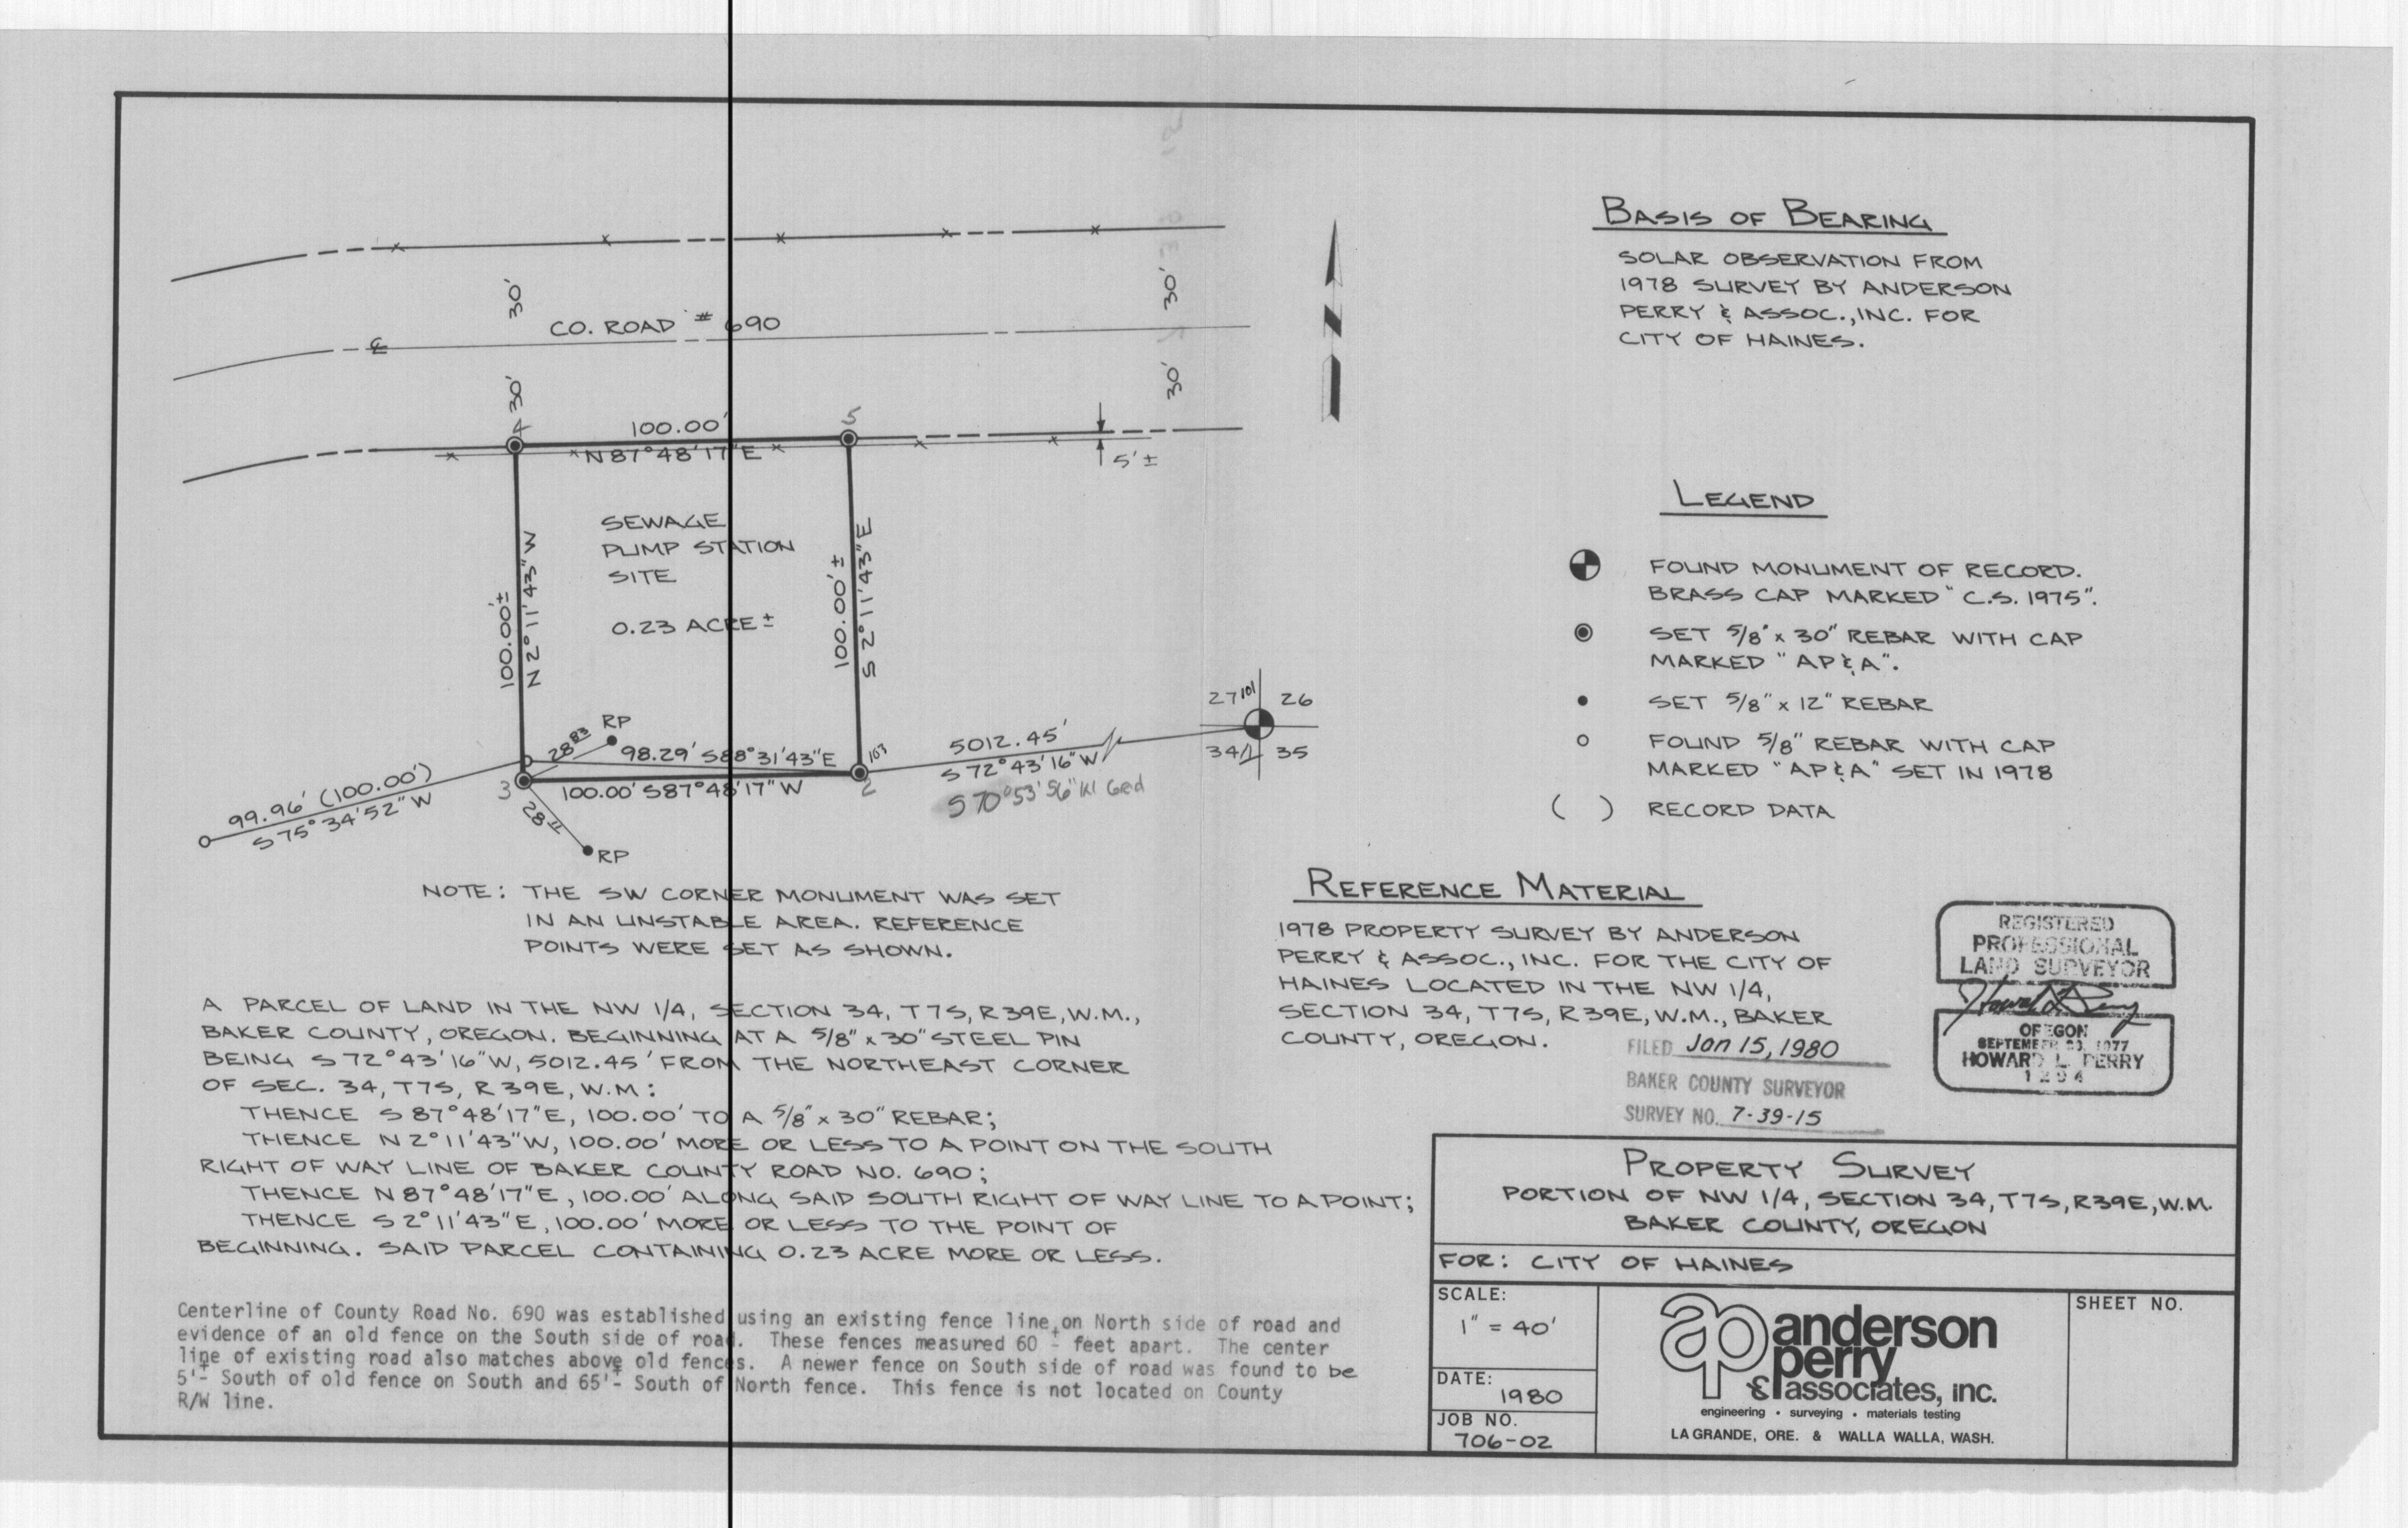 BASIS OF BEARING
SOLAR OBSERVATION FROM
1978 SURVEY BY ANDERSON
PERRY & ASSOC.,INC. FOR
CITY OF HAINES.
30'
30'
CO. ROAD # 690
℄
30'
30'
4
100.00'
5
N 87°48'17"E
5'±
SEWAGE
PUMP STATION
SITE
0.23 ACRE±
100.00'±
N 2°11'43"W
100.00'±
S 2°11'43"E
LEGEND
FOUND MONUMENT OF RECORD.
BRASS CAP MARKED "C.S. 1975".
SET 5/8" x 30" REBAR WITH CAP
MARKED "AP&A".
SET 5/8" x 12" REBAR
FOUND 5/8" REBAR WITH CAP
MARKED "AP&A" SET IN 1978
( ) RECORD DATA
27 101 26
34 35
RP
28.83
98.29' S88°31'43"E
103
5012.45'
S 72°43'16"W
S 70°53'56"W Ged
3
100.00' S87°48'17"W
2
99.96' (100.00')
S 75°34'52"W
RP
NOTE: THE SW CORNER MONUMENT WAS SET
IN AN UNSTABLE AREA. REFERENCE
POINTS WERE SET AS SHOWN.
REFERENCE MATERIAL
1978 PROPERTY SURVEY BY ANDERSON
PERRY & ASSOC., INC. FOR THE CITY OF
HAINES LOCATED IN THE NW 1/4,
SECTION 34, T7S, R39E, W.M., BAKER
COUNTY, OREGON.
FILED Jan 15, 1980
BAKER COUNTY SURVEYOR
SURVEY NO. 7-39-15
REGISTERED
PROFESSIONAL
LAND SURVEYOR
Howard L. Perry
OREGON
SEPTEMBER 23, 1977
HOWARD L. PERRY
1294
A PARCEL OF LAND IN THE NW 1/4, SECTION 34, T7S, R39E, W.M.,
BAKER COUNTY, OREGON. BEGINNING AT A 5/8" x 30" STEEL PIN
BEING S 72°43'16"W, 5012.45' FROM THE NORTHEAST CORNER
OF SEC. 34, T7S, R39E, W.M:
THENCE S 87°48'17"E, 100.00' TO A 5/8" x 30" REBAR;
THENCE N 2°11'43"W, 100.00' MORE OR LESS TO A POINT ON THE SOUTH
RIGHT OF WAY LINE OF BAKER COUNTY ROAD NO. 690;
THENCE N 87°48'17"E, 100.00' ALONG SAID SOUTH RIGHT OF WAY LINE TO A POINT;
THENCE S 2°11'43"E, 100.00' MORE OR LESS TO THE POINT OF
BEGINNING. SAID PARCEL CONTAINING 0.23 ACRE MORE OR LESS.
Centerline of County Road No. 690 was established using an existing fence line on North side of road and
evidence of an old fence on the South side of road. These fences measured 60 ± feet apart. The center
line of existing road also matches above old fences. A newer fence on South side of road was found to be
5'± South of old fence on South and 65'± South of North fence. This fence is not located on County
R/W line.
PROPERTY SURVEY
PORTION OF NW 1/4, SECTION 34, T7S, R39E, W.M.
BAKER COUNTY, OREGON
FOR: CITY OF HAINES
SCALE:
1" = 40'
DATE:
1980
JOB NO.
706-02
ap
anderson
perry
& associates, inc.
engineering • surveying • materials testing
LA GRANDE, ORE. & WALLA WALLA, WASH.
SHEET NO.